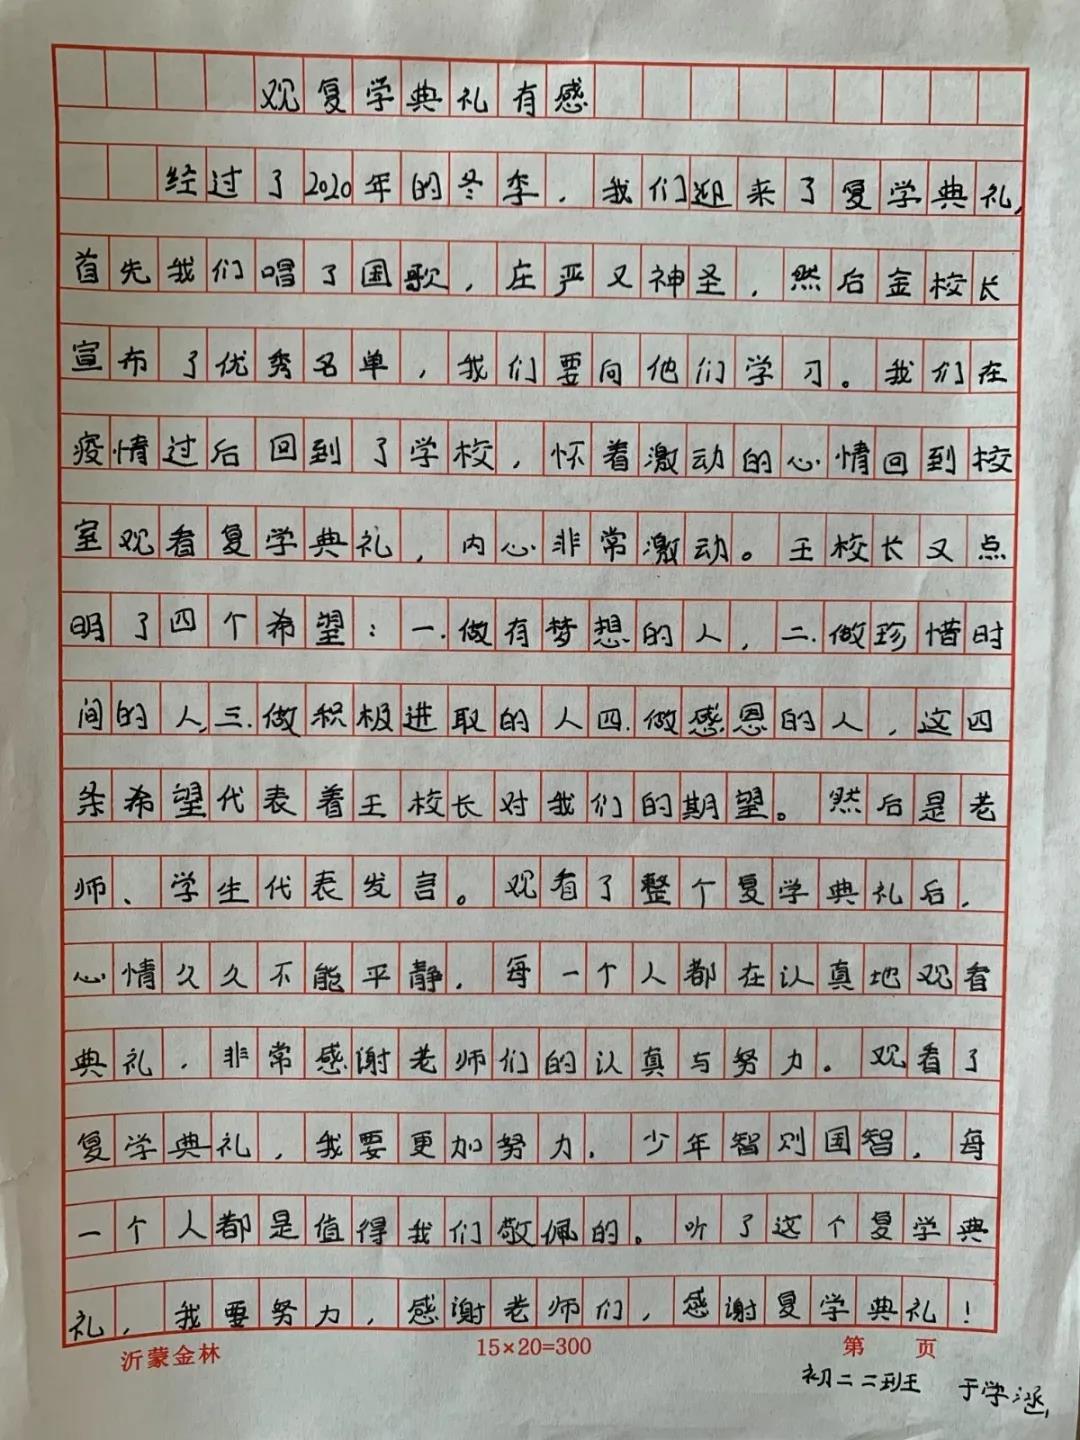 观复学典礼有感
经过了2020年的冬季，我们迎来了复学典礼，
首先我们唱了国歌，庄严又神圣，然后金校长
宣布了优秀名单，我们要向他们学习。我们在
疫情过后回到了学校，怀着激动的心情回到校
室观看复学典礼，内心非常激动。王校长又点
明了四个希望：一.做有梦想的人，二.做珍惜时
间的人，三.做积极进取的人四.做感恩的人，这四
条希望代表着王校长对我们的期望。然后是老
师、学生代表发言。观看了整个复学典礼后，
心情久久不能平静，每一个人都在认真地观看
典礼，非常感谢老师们的认真与努力。观看了
复学典礼，我要更加努力，少年智则国智，每
一个人都是值得我们敬佩的。听了这个复学典
礼，我要努力，感谢老师们，感谢复学典礼！
沂蒙金林 15×20=300 第 页
初二二班 于学涵